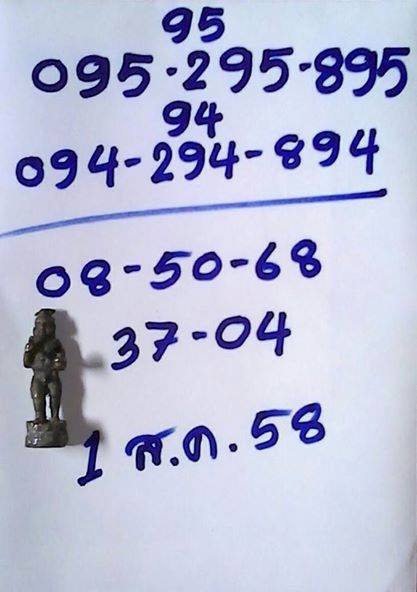 95
095-295-895
94
094-294-894
08-50-68
37-04
1 ส.ค. 58